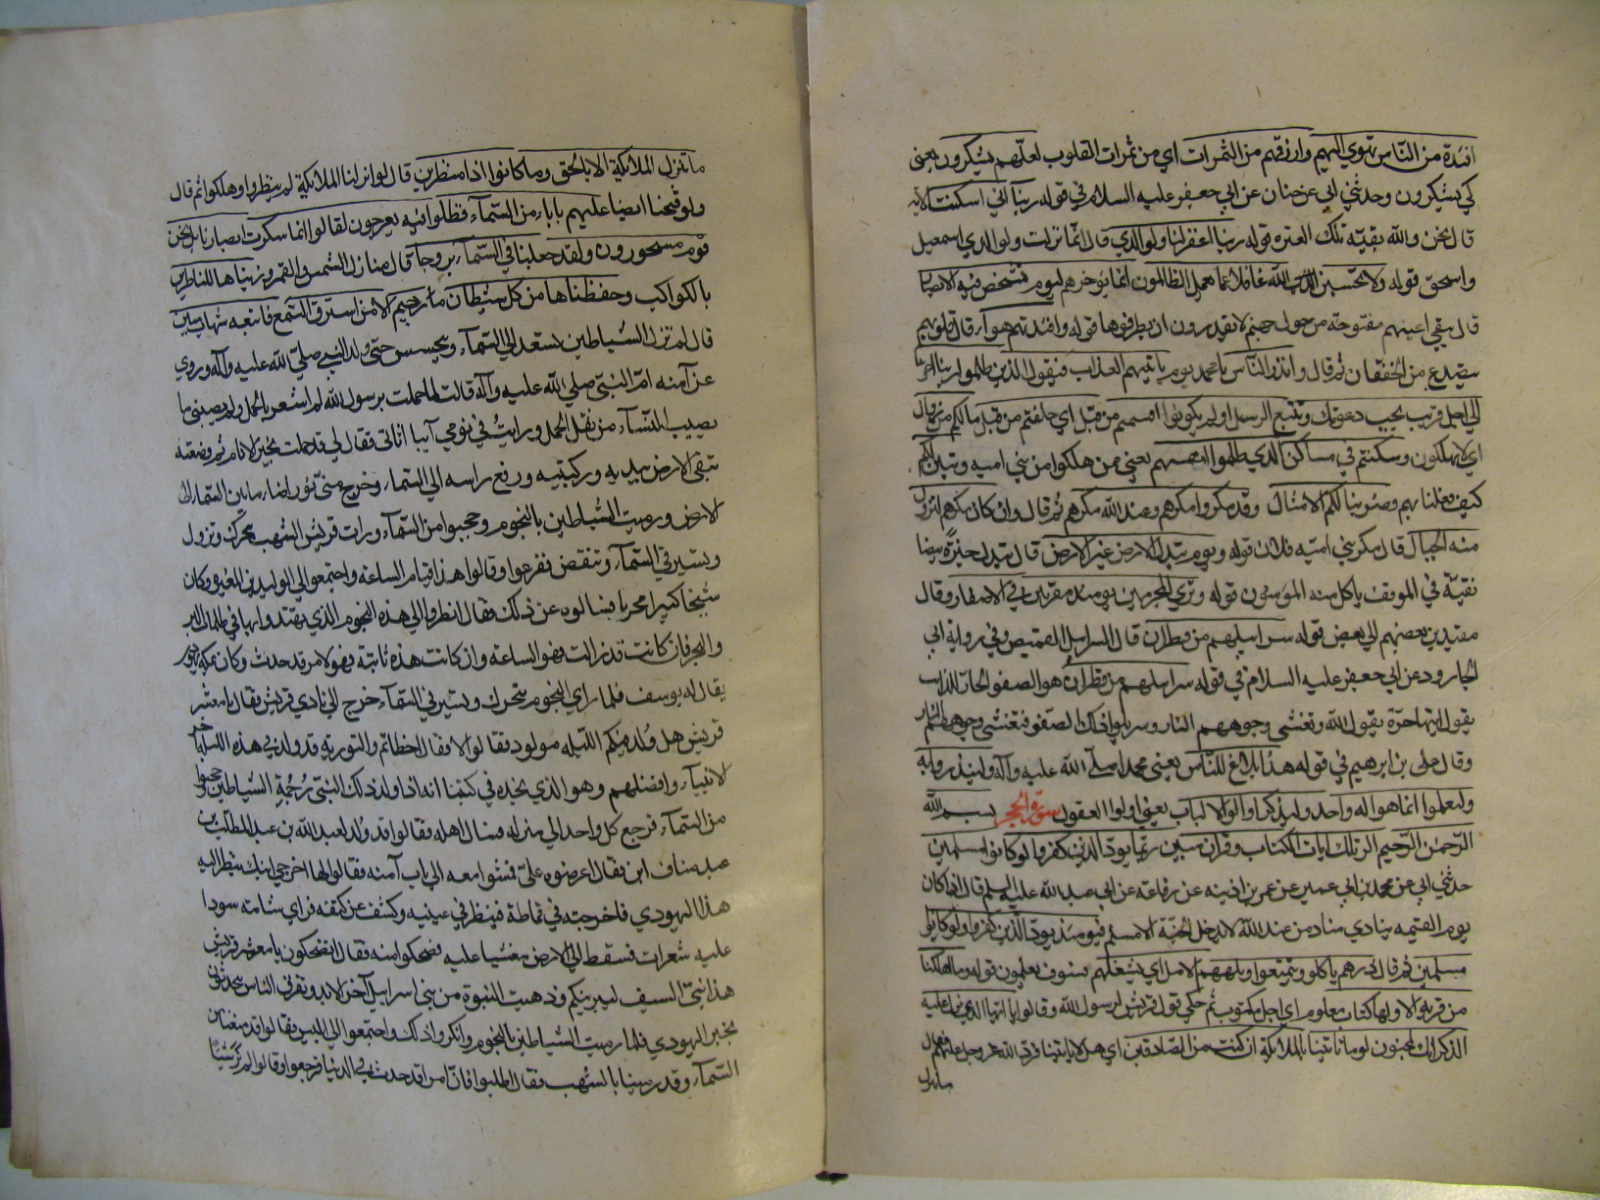 افئدة من الناس تهوي اليهم وارزقهم من الثمرات اي من ثمرات القلوب لعلهم يشكرون يعني
كي يشكرون وحدثني ابي عن حنان عن ابي جعفر عليه السلام في قوله ربنا اني اسكنت الآية
قال نحن والله بقية تلك العترة قوله ربنا اغفر لنا ولوالدي قال انما نزلت ولولدي اسمعيل
واسحق قوله ولا تحسبن الله غافلا عما يعمل الظالمون انما يؤخرهم ليوم تشخص فيه الابصار
قال يبقي اعينهم مفتوحة من هول جهنم لا يقدرون ان يطرفوها قوله وافئدتهم هواء قال قلوبهم
يتصدع من الخفقان ثم قال وانذر الناس يا محمد يوم ياتيهم العذاب فيقول الذين ظلموا ربنا اخرنا
الي اجل قريب نجب دعوتك ونتبع الرسل اولم تكونوا اقسمتم من قبل اي حلفتم من قبل ما لكم من زوال
اي لا تهلكون وسكنتم في مساكن الذين ظلموا انفسهم يعني ممن هلكوا من بني امية وتبين لكم
كيف فعلنا بهم وضربنا لكم الامثال وقد مكروا مكرهم وعند الله مكرهم ثم قال وان كان مكرهم لتزول
منه الجبال قال مكر بني امية فلان قوله ويوم تبدل الارض غير الارض قال تبدل خبزة بيضا
نقية في الموقف ياكل منه المؤمنون قوله وتري المجرمين يومئذ مقرنين في الاصفاد وقال
مقيدين بعضهم الي بعض قوله سرابيلهم من قطران قال السرابيل القميص وفي رواية ابي
الجارود عن ابي جعفر عليه السلام في قوله سرابيلهم من قطران هو الصفر الحار الذائب
يقول انتها حره يقول الله وتغشي وجوههم النار وسربلوا ذلك الصفر فتغشي وجوههم النار
وقال علي بن ابرهيم في قوله هذا بلاغ للناس يعني محمدا صلي الله عليه وآله ولينذروا به
وليعلموا انما هو اله واحد وليذكر اولوا الالباب يعني اولوا العقول سورة الحجر بسم الله
الرحمن الرحيم الر تلك ايات الكتاب وقران مبين ربما يود الذين كفروا لو كانوا مسلمين
حدثني ابي عن محمد بن ابي عمير عن عمر بن اذينه عن رفاعة عن ابي عبد الله عليه السلم قال اذا كان
يوم القيمه ينادي مناد من عند الله لا يدخل الجنة الا مسلم فيومئذ يود الذين كفروا لو كانوا
مسلمين ثم قال ذرهم ياكلوا ويتمتعوا ويلههم الامل اي يشغلهم فسوف يعلمون قوله وما اهلكنا
من قرية الا ولها كتاب معلوم اي اجل مكتوب ثم حكي قول قريش لرسول الله وقالوا يا ايها الذي نزل عليه
الذكر انك لمجنون لو ما تاتينا بالملائكة ان كنت من الصادقين اي هلا تاتينا فرد الله عز وجل عليهم فقال
ما ننزل
ما تنزل الملائكة الا بالحق وما كانوا اذا منظرين قال لو انزلنا الملائكة لم ينظروا وهلكوا ثم قال
ولو فتحنا ايضا عليهم بابا من السماء فظلوا فيه يعرجون لقالوا انما سكرت ابصارنا بل نحن
قوم مسحورون ولقد جعلنا في السماء بروجا قال منازل الشمس والقمر وزيناها للناظرين
بالكواكب وحفظناها من كل شيطان مارد رجيم الا من استرق السمع فاتبعه شهاب مبين
قال لم تزل الشياطين تصعد الي السماء وتجسس حتي ولد النبي صلي الله عليه وآله وروي
عن آمنه ام النبي صلي الله عليه وآله قالت لما حملت برسول الله لم اشعر بالحمل ولم يصبني ما
يصيب النساء من ثقل الحمل ورايت في نومي آتيا اتاني فقال لي قد حملت بخير الانام ثم وضعته
تتقي الارض بيديه وركبتيه ورفع راسه الي السماء وخرج مني نور اضاء ما بين السماء الي
الارض ورميت الشياطين بالنجوم وحجبوا من السماء ورات قريش الشهب تتحرك وتزول
وتسير في السماء وتنقض ففزعوا وقالوا هذا قيام الساعة واجتمعوا الي الوليد بن المغيرة وكان
شيخا كبيرا مجربا فسالوه عن ذلك فقال انظروا الي هذه النجوم الذي يهتدوا بها في ظلمات البر
والبحر فان كانت قد زالت فهو الساعة وان كانت هذه ثابتة فهو لامر قد حدث وكان بمكة يهودي
يقال له يوسف فلما راي النجوم تتحرك وتسير في السماء خرج الي نادي قريش فقال يا معشر
قريش هل ولد منكم الليله مولود فقالوا لا فقال اخطاتم والتورية قد ولد في هذه الليلة آخر
الانبياء وافضلهم وهو الذي نجده في كتبنا انه اذا ولد ذلك النبي رجمت الشياطين وحجبوا
من السماء فرجع كل واحد الي منزله فسال اهله فقالوا قد ولد لعبد الله بن عبد المطلب بن
عبد مناف ابن فقال اعرضوه علي فمشوا معه الي باب آمنه فقالوا لها اخرجي ابنك ينظر اليه
هذا اليهودي فاخرجته في قماطة فينظر في عينيه وكشف عن كتفه فراي شامة سودا
عليه شعرات فسقط الي الارض مغشيا عليه فضحكوا منه فقال اتضحكون يا معشر قريش
هذا نبي السيف ليبيرنكم وذهبت النبوة من بني اسرايل آخر الابد وتفرق الناس يتحدثون
بخبر اليهودي فلما رميت الشياطين بالنجوم وانكروا ذلك واجتمعوا الي ابليس فقالوا قد منعنا من
السماء وقد رمينا بالشهب فقال اطلبوا فان امرا قد حدث في الدنيا فرجعوا وقالوا لم نر شيئا